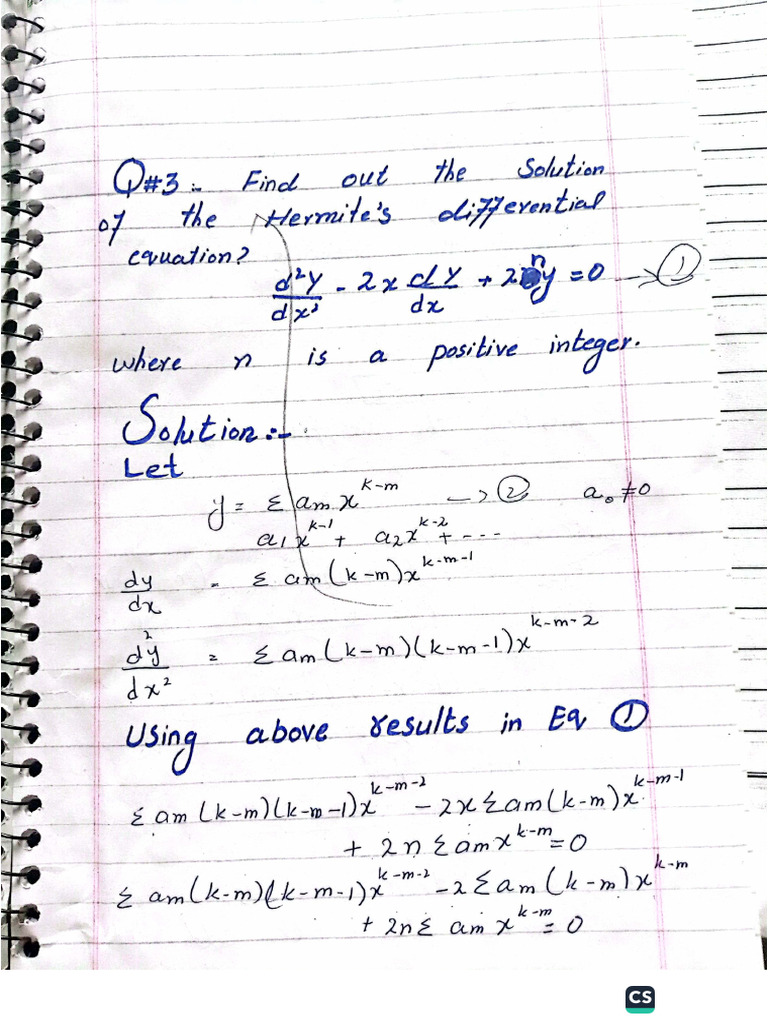 Q#3:- Find out the Solution
of the Hermite's differential
equation?
d²y/dx² - 2x dy/dx + 2ny = 0 → ①
where n is a positive integer.
Solution:-
Let
y = Σ amx^k-m → ② a₀ ≠ 0
a₁x^k-1 + a₂x^k-2 + ---
dy/dx = Σ am(k-m)x^k-m-1
d²y/dx² = Σ am(k-m)(k-m-1)x^k-m-2
Using above results in Eq ①
Σ am(k-m)(k-m-1)x^k-m-2 - 2x Σ am(k-m)x^k-m-1
+ 2n Σ amx^k-m = 0
Σ am(k-m)(k-m-1)x^k-m-2 - 2 Σ am(k-m)x^k-m
+ 2n Σ am x^k-m = 0
CS